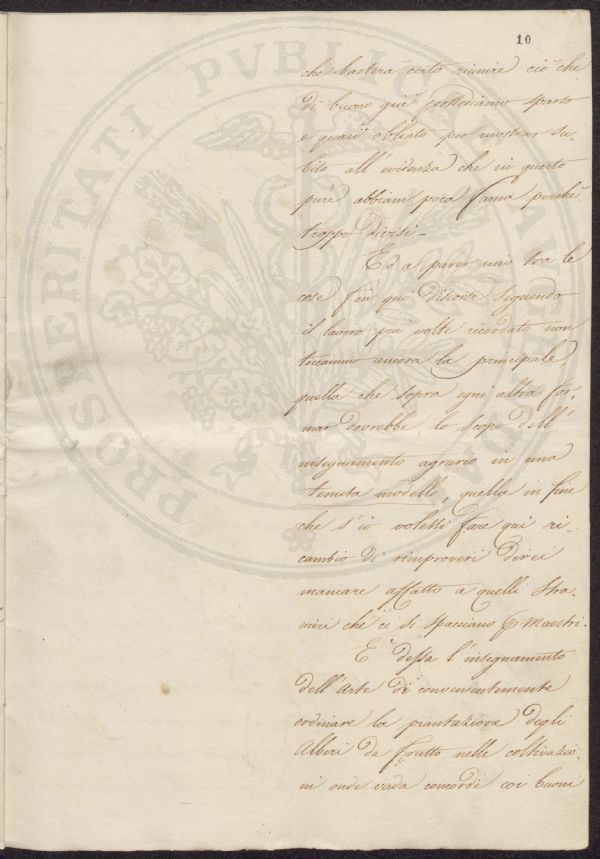 10
che basterà certo riunire ciò che
di buono qui possediamo sparso
e quasi obliato per mostrar su-
bito all'evidenza che in questo
pure abbiam poca fama perchè
troppo divisi.
Ed a parer mio tra le
cose fin qui discorse seguendo
il lavoro più volte ricordato non
toccammo ancora la principale
quella che sopra ogni altra for-
mar dovrebbe lo scopo dell'
insegnamento agrario in una
tenuta modello, quella in fine
che s'io volessi fare qui ri-
cambio di rimproveri direi
mancare affatto a quelli stra-
nieri che ci si spacciano p Maestri.
E' dessa l'insegnamento
dell'Arte di convenientemente
ordinare la piantazione degli
Alberi da frutto nelle coltivazio-
ni onde vada concorde coi buoni
PROSPERITATI PVBLICAE AVGENDAE